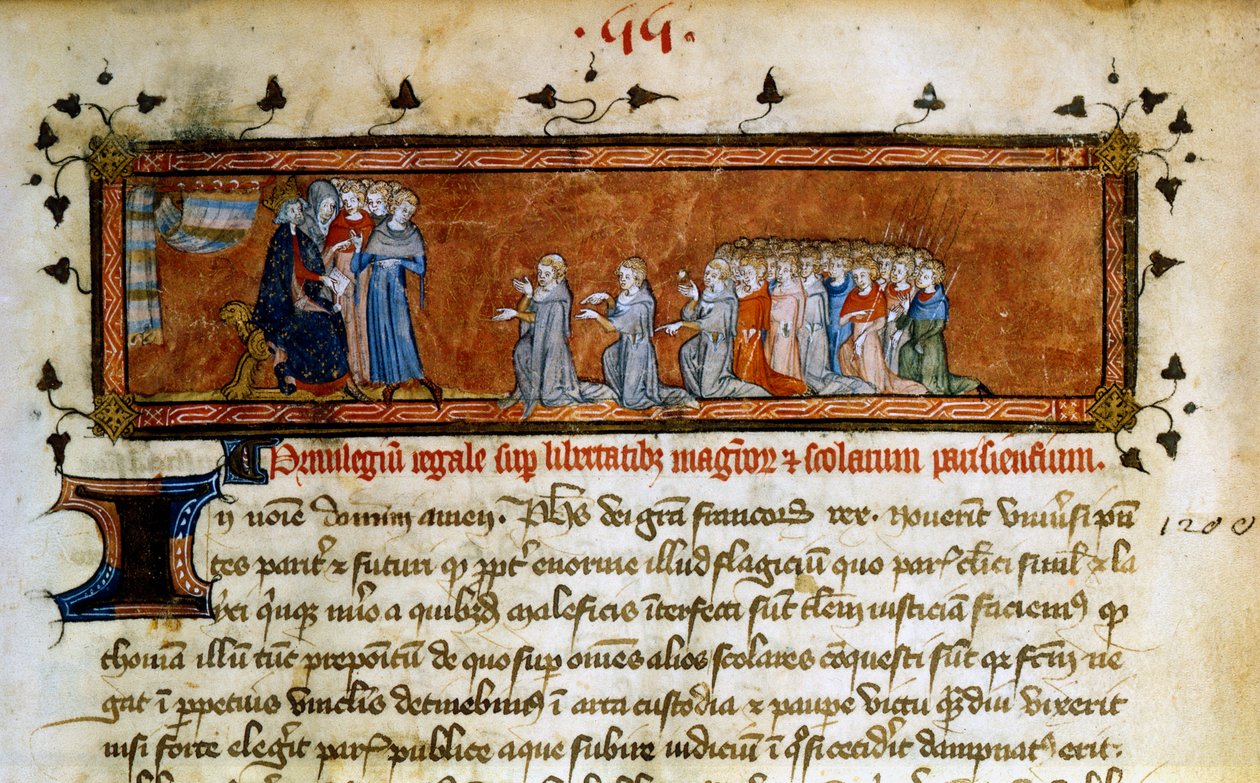 Privilegiū regale sup libertatibz magrōr & scolarium parisiensium.
In noīe domini amen. Phs dei grā francorꝝ rex. Noverint univsi psn
1200
tes parit & futuri qͥ ppt enorme illud flagiciū quo par clīci simul & la
yci qͥnqꝫ nūo a quibꝰd maleficis īterfecti sūt talem iusticiā faciemꝰ qͥ
thomā illū tūc prepoītū de quo sup omnes alios scolares cōquesti sūt qꝛ fctm ne
gat ī ppetuis vinclis detinebimꝰ ī arta custodia & paupe victu qͣdiu vixerit
nisi forte elegit par publice aque subire iudiciū ī qͦ si ceciderit dampnatꝰ erit.